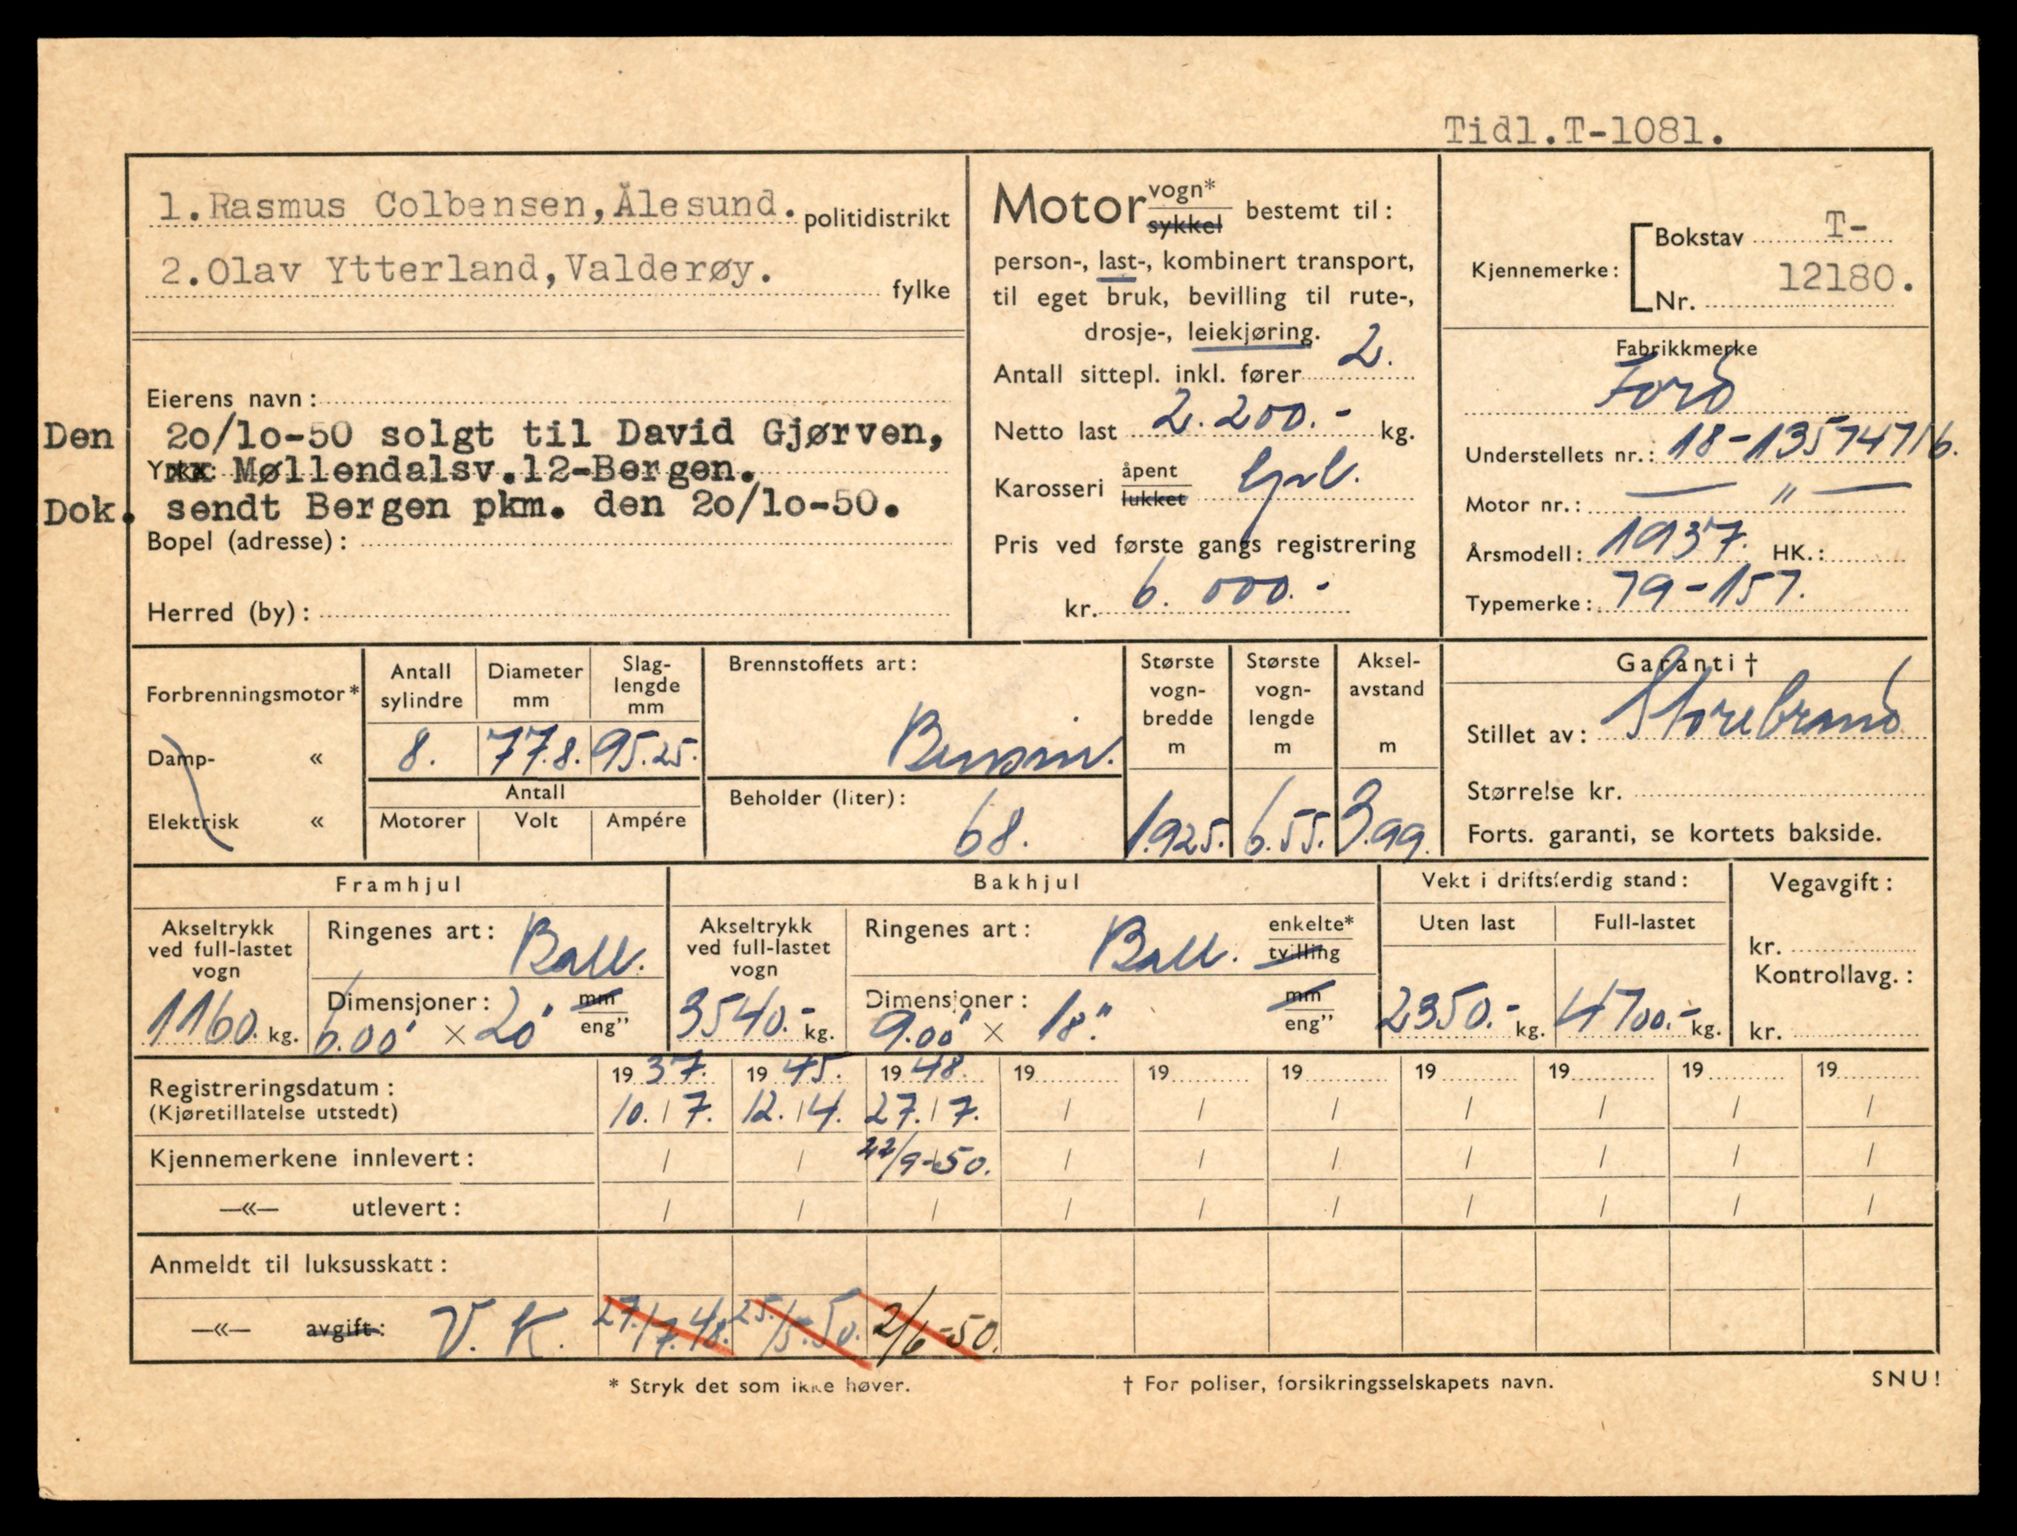 Tidl.T-1081.
1.Rasmus Colbensen,Ålesund. politidistrikt
2.Olav Ytterland,Valderøy. fylke
Eierens navn:
Den 20/10-50 solgt til David Gjørven,
Møllendalsv.12-Bergen.
Dok. sendt Bergen pkm. den 20/10-50.
Bopel (adresse):
Herred (by):
Motor vogn*
sykkel bestemt til:
person-, last-, kombinert transport,
til eget bruk, bevilling til rute-,
drosje-, leiekjøring.
Antall sittepl. inkl. fører 2.
Netto last 2.200.- kg.
Karosseri åpent
lukket
Pris ved første gangs registrering
kr. 6.000.-
Kjennemerke: Bokstav T-
Nr. 12180.
Fabrikkmerke
Ford
Understellets nr.: 18-1357471/6.
Motor nr.: — " —
Årsmodell: 1937. HK.:
Typemerke: 79-157.
Forbrenningsmotor*
Damp- «
Elektrisk «
Antall sylindre
8.
Diameter mm
77.8.
Slag-
lengde
mm
95.25.
Antall
Motorer Volt Ampére
Brennstoffets art:
Bensin.
Beholder (liter):
68.
Største
vogn-
bredde
m
1.925.
Største
vogn-
lengde
m
6.55.
Aksel-
avstand
m
3.99.
Garanti †
Stillet av: Storebrand
Størrelse kr.
Forts. garanti, se kortets bakside.
Framhjul
Akseltrykk
ved full-lastet
vogn
1160. kg.
Ringenes art: Ball.
Dimensjoner: mm
eng”
6.00" × 20"
Bakhjul
Akseltrykk
ved full-lastet
vogn
3540.- kg.
Ringenes art: Ball. enkelte*
tvilling
Dimensjoner: mm
eng”
9.00" × 18"
Vekt i driftsferdig stand:
Uten last Full-lastet
2350.- kg. 4700.- kg.
Vegavgift:
kr.
Kontrollavg.:
kr.
Registreringsdatum: 1937. 1945. 1948. 19 19 19 19 19 19 19
(Kjøretillatelse utstedt) 10./7. 12./4. 27./7. / / / / / / /
Kjennemerkene innlevert: / / 22/9-50. / / / / / / /
—«— utlevert: / / / / / / / / / /
Anmeldt til luksusskatt:
—«— avgift: V. K. 27./7.48. 25./5.50. 2/6-50.
* Stryk det som ikke høver. † For poliser, forsikringsselskapets navn. SNU!